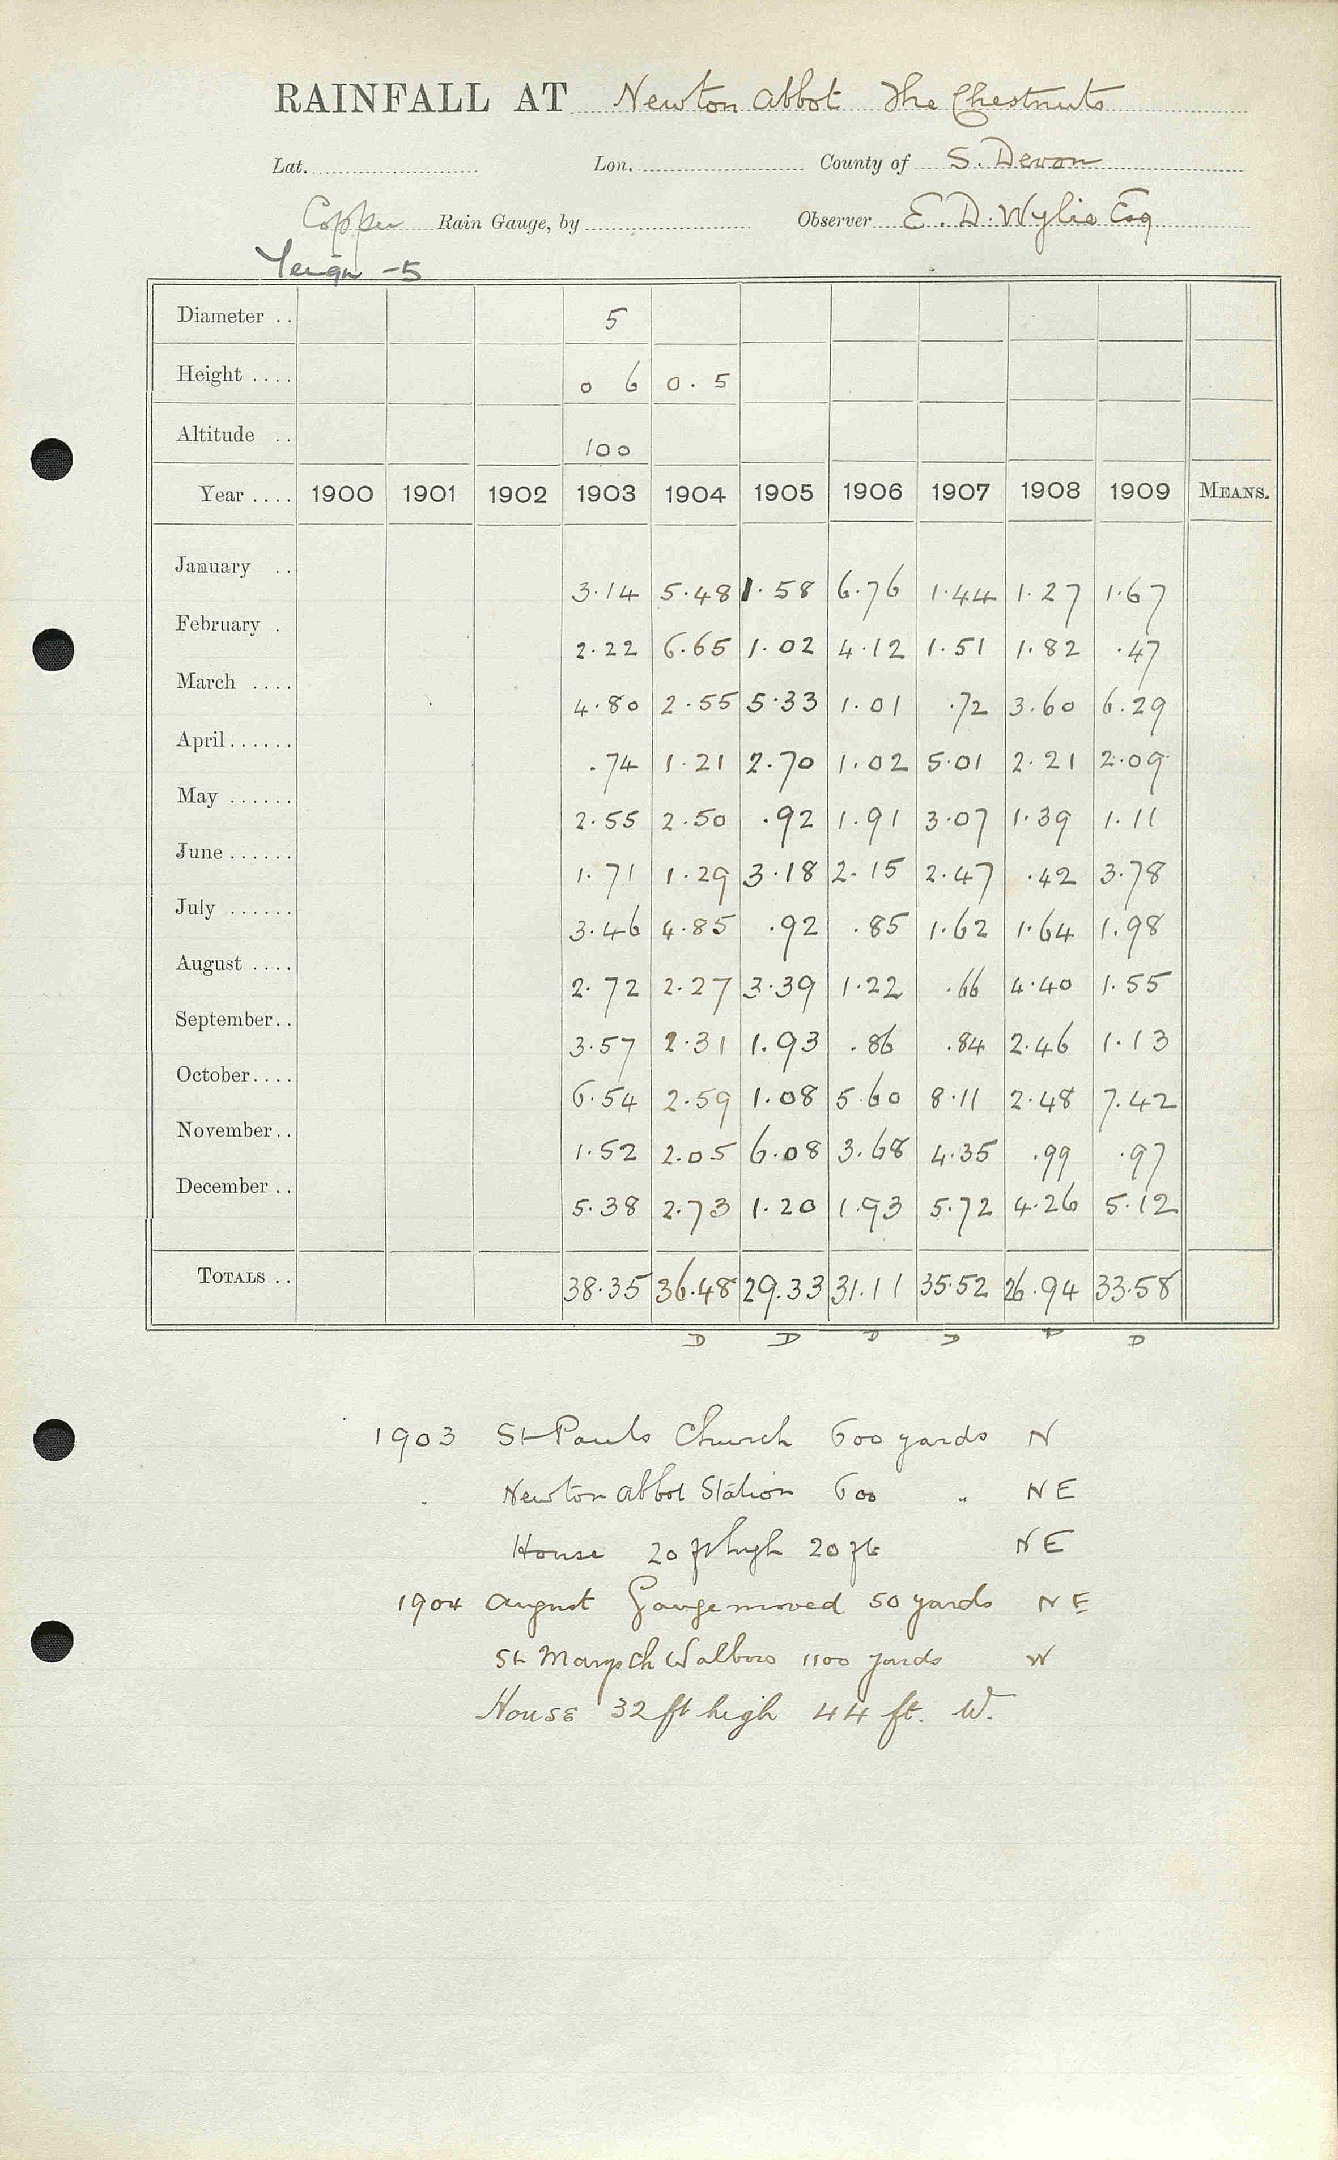 RAINFALL AT Newton Abbot The Chestnuts
Lat. Lon. County of S. Devon
Copper Rain Gauge, by Observer E. D. Wylie Esq
Teign -5
Diameter .. 5
Height .... 0 6 0.5
Altitude .. 100
Year .... 1900 1901 1902 1903 1904 1905 1906 1907 1908 1909 MEANS.
January .. 3.14 5.48 1.58 6.76 1.44 1.27 1.67
February . 2.22 6.65 1.02 4.12 1.51 1.82 .47
March .... 4.80 2.55 5.33 1.01 .72 3.60 6.29
April...... .74 1.21 2.70 1.02 5.01 2.21 2.09
May ...... 2.55 2.50 .92 1.91 3.07 1.39 1.11
June...... 1.71 1.29 3.18 2.15 2.47 .42 3.78
July ...... 3.46 4.85 .92 .85 1.62 1.64 1.98
August .... 2.72 2.27 3.39 1.22 .66 4.40 1.55
September.. 3.57 2.31 1.93 .86 .84 2.46 1.13
October.... 6.54 2.59 1.08 5.60 8.11 2.48 7.42
November.. 1.52 2.05 6.08 3.68 4.35 .99 .97
December .. 5.38 2.73 1.20 1.93 5.72 4.26 5.12
TOTALS .. 38.35 36.48 29.33 31.11 35.52 26.94 33.58
D D D D D D
1903 St Pauls Church 600 yards N
Newton Abbot Station 600 " NE
House 20 ft high 20 ft NE
1904 August Gauge moved 50 yards NE
St Marys Ch 1100 yards W
House 32 ft high 44 ft. W.